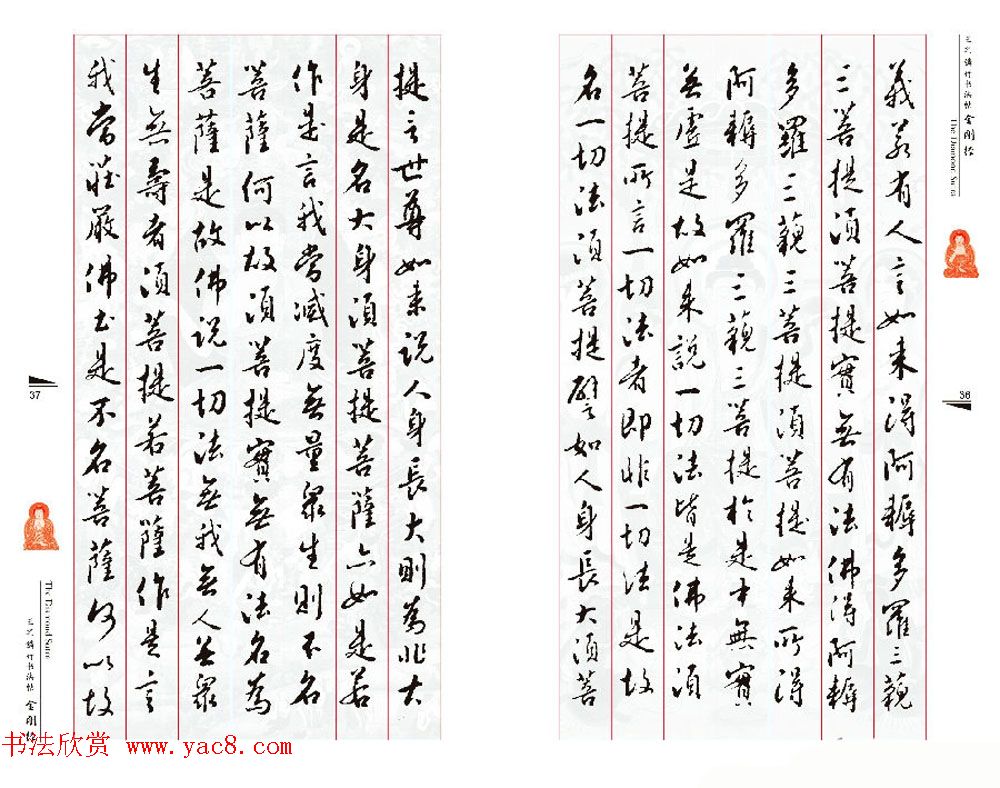 金剛經
The Diamond Sutra
36
義若有人言如来得阿耨多羅三藐
三菩提須菩提實無有法佛得阿耨
多羅三藐三菩提須菩提如来所得
阿耨多羅三藐三菩提於是中無實
無虛是故如来說一切法皆是佛法須
菩提所言一切法者即非一切法是故
名一切法須菩提譬如人身長大須菩
提言世尊如来说人身長大則為非大
身是名大身須菩提菩薩亦如是若
作是言我當滅度無量眾生則不名
菩薩何以故須菩提實無有法名為
菩薩是故佛说一切法無我無人無眾
生無壽者須菩提若菩薩作是言
我當莊嚴佛土是不名菩薩何以故
37
The Diamond Sutra
金剛經
书法欣赏 www.yac8.com